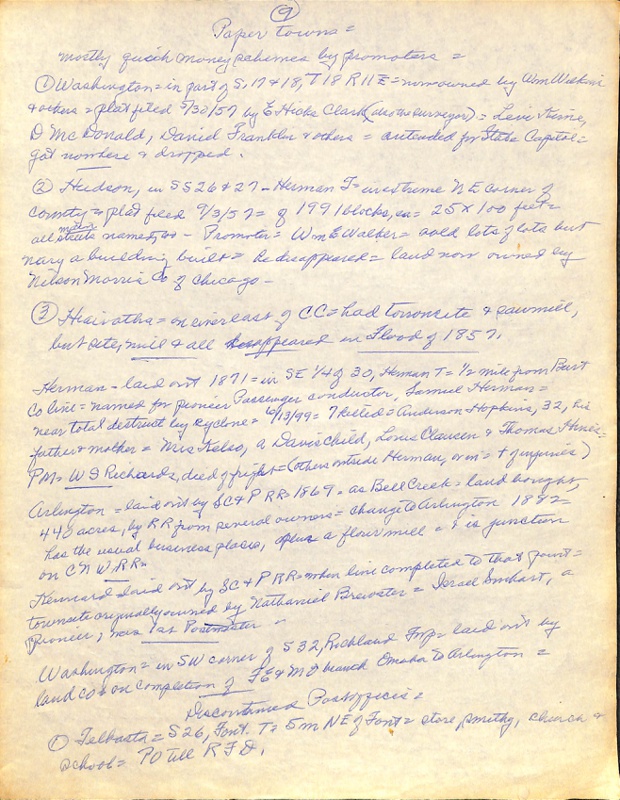 9
Paper towns =
mostly quick money schemes by promoters =
① Washington = in part of S, 17 & 18, T 18 R 11 E = now owned by Wm Watkins
& others = plat filed 5/30/57 by E Hicks Clark (also surveyor) = Levi Kime,
D McDonald, David Franklin & others = intended for State Capitol =
got nowhere & dropped.
② Hudson, in SS 26 & 27 - Herman T = in extreme NE corner of
county = plat filed 9/3/57 = of 199 blocks, ea = 25 x 100 feet =
all main streets named, - Promoter = Wm E Walker = sold lots of lots but
nary a building built = he disappeared = land now owned by
Nelson Morris Co of Chicago -
③ Hiawatha = on river east of CC = had townsite & sawmill,
but site, mill & all disappeared in Flood of 1857.
Herman - laid out 1871 = in SE 1/4 of 30, Herman T = 1/2 mile from Burt
Co line = named for pioneer Passenger conductor, Samuel Herman =
near total destruct by cyclone = 6/13/99 = 7 killed = Anderson Hopkins, 32, his
father & mother = Mrs Kelso, a Davis child, Louis Clausen & Thomas Hines =
PM = W S Richards, died of fright = (others outside Herman, + of injuries)
Arlington = laid out by SC & P RR = 1869 = as Bell Creek = land bought,
440 acres, by RR from several owners = change to Arlington 1882 =
has the usual business places, plus a flour mill & is junction
on C N W RR =
Kennard laid out by SC & P RR = when line completed to that point =
townsite originally owned by Nathaniel Brewster = Israel Swihart, a
pioneer, was 1st Postmaster -
Washington = in SW corner of S 32, Richland Twp = laid out by
land co & on completion of FE & MV branch Omaha to Arlington =
Discontinued Postoffices =
① Telbasta = S 26, Font. T = 5 m NE of Font = store, smithy, church &
school = PO till R F D.